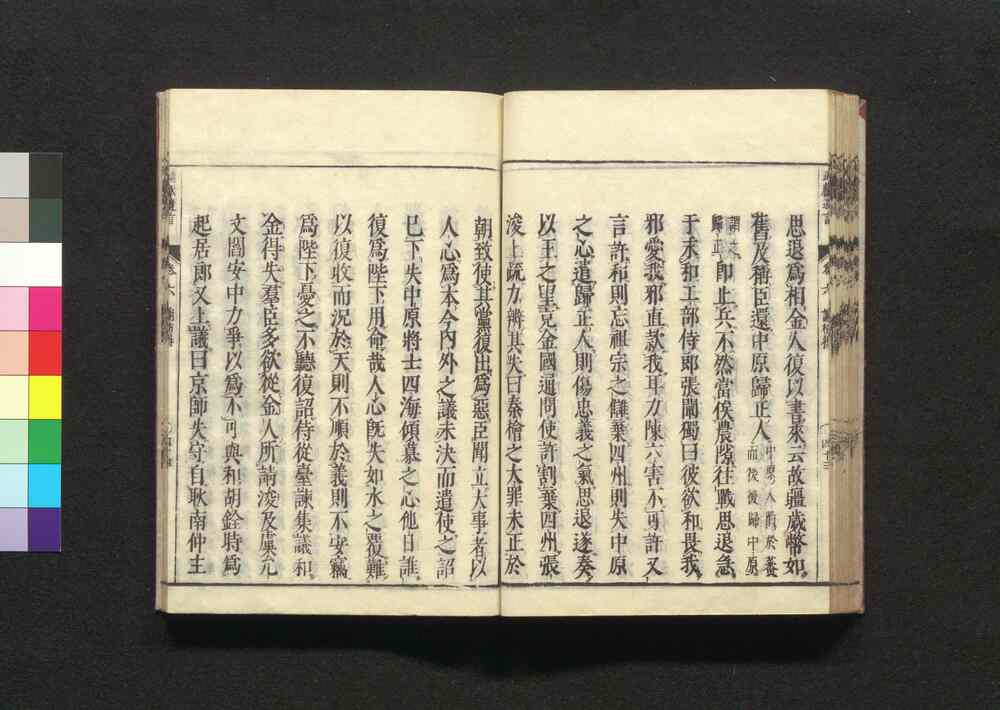 思退爲相金人復以書來云故疆歲幣如
舊及稱臣還中原歸正人中原人陷於
而後復歸中原
謂之
歸正卽止兵不然當俟農隙往戰思退急
于求和工部侍郎張闡獨曰彼欲和畏我
邪愛我邪直款我耳力陳六害不可許又
言許和則忘祖宗之讎棄四州則失中原
之心遣歸正人則傷忠義之氣思退遂奏
以王之望充金國通問使許割棄四州張
浚上疏力辨其失曰秦檜之大罪未正於
朝致使其黨復出爲惡臣聞立大事者以
人心爲本今內外之議未決而遣使之詔
已下失中原將士四海傾慕之心他日誰
復爲陛下用命哉人心旣失如水之覆難
以復收而況於天則不順於義則不安竊
爲陛下憂之不聽復詔侍從臺諫集議和
金得失羣臣多欲從金人所請浚及虞允
文閻安中力爭以爲不可與和胡銓時爲
起居郎又上議曰京師失守自耿南仲主
卷六